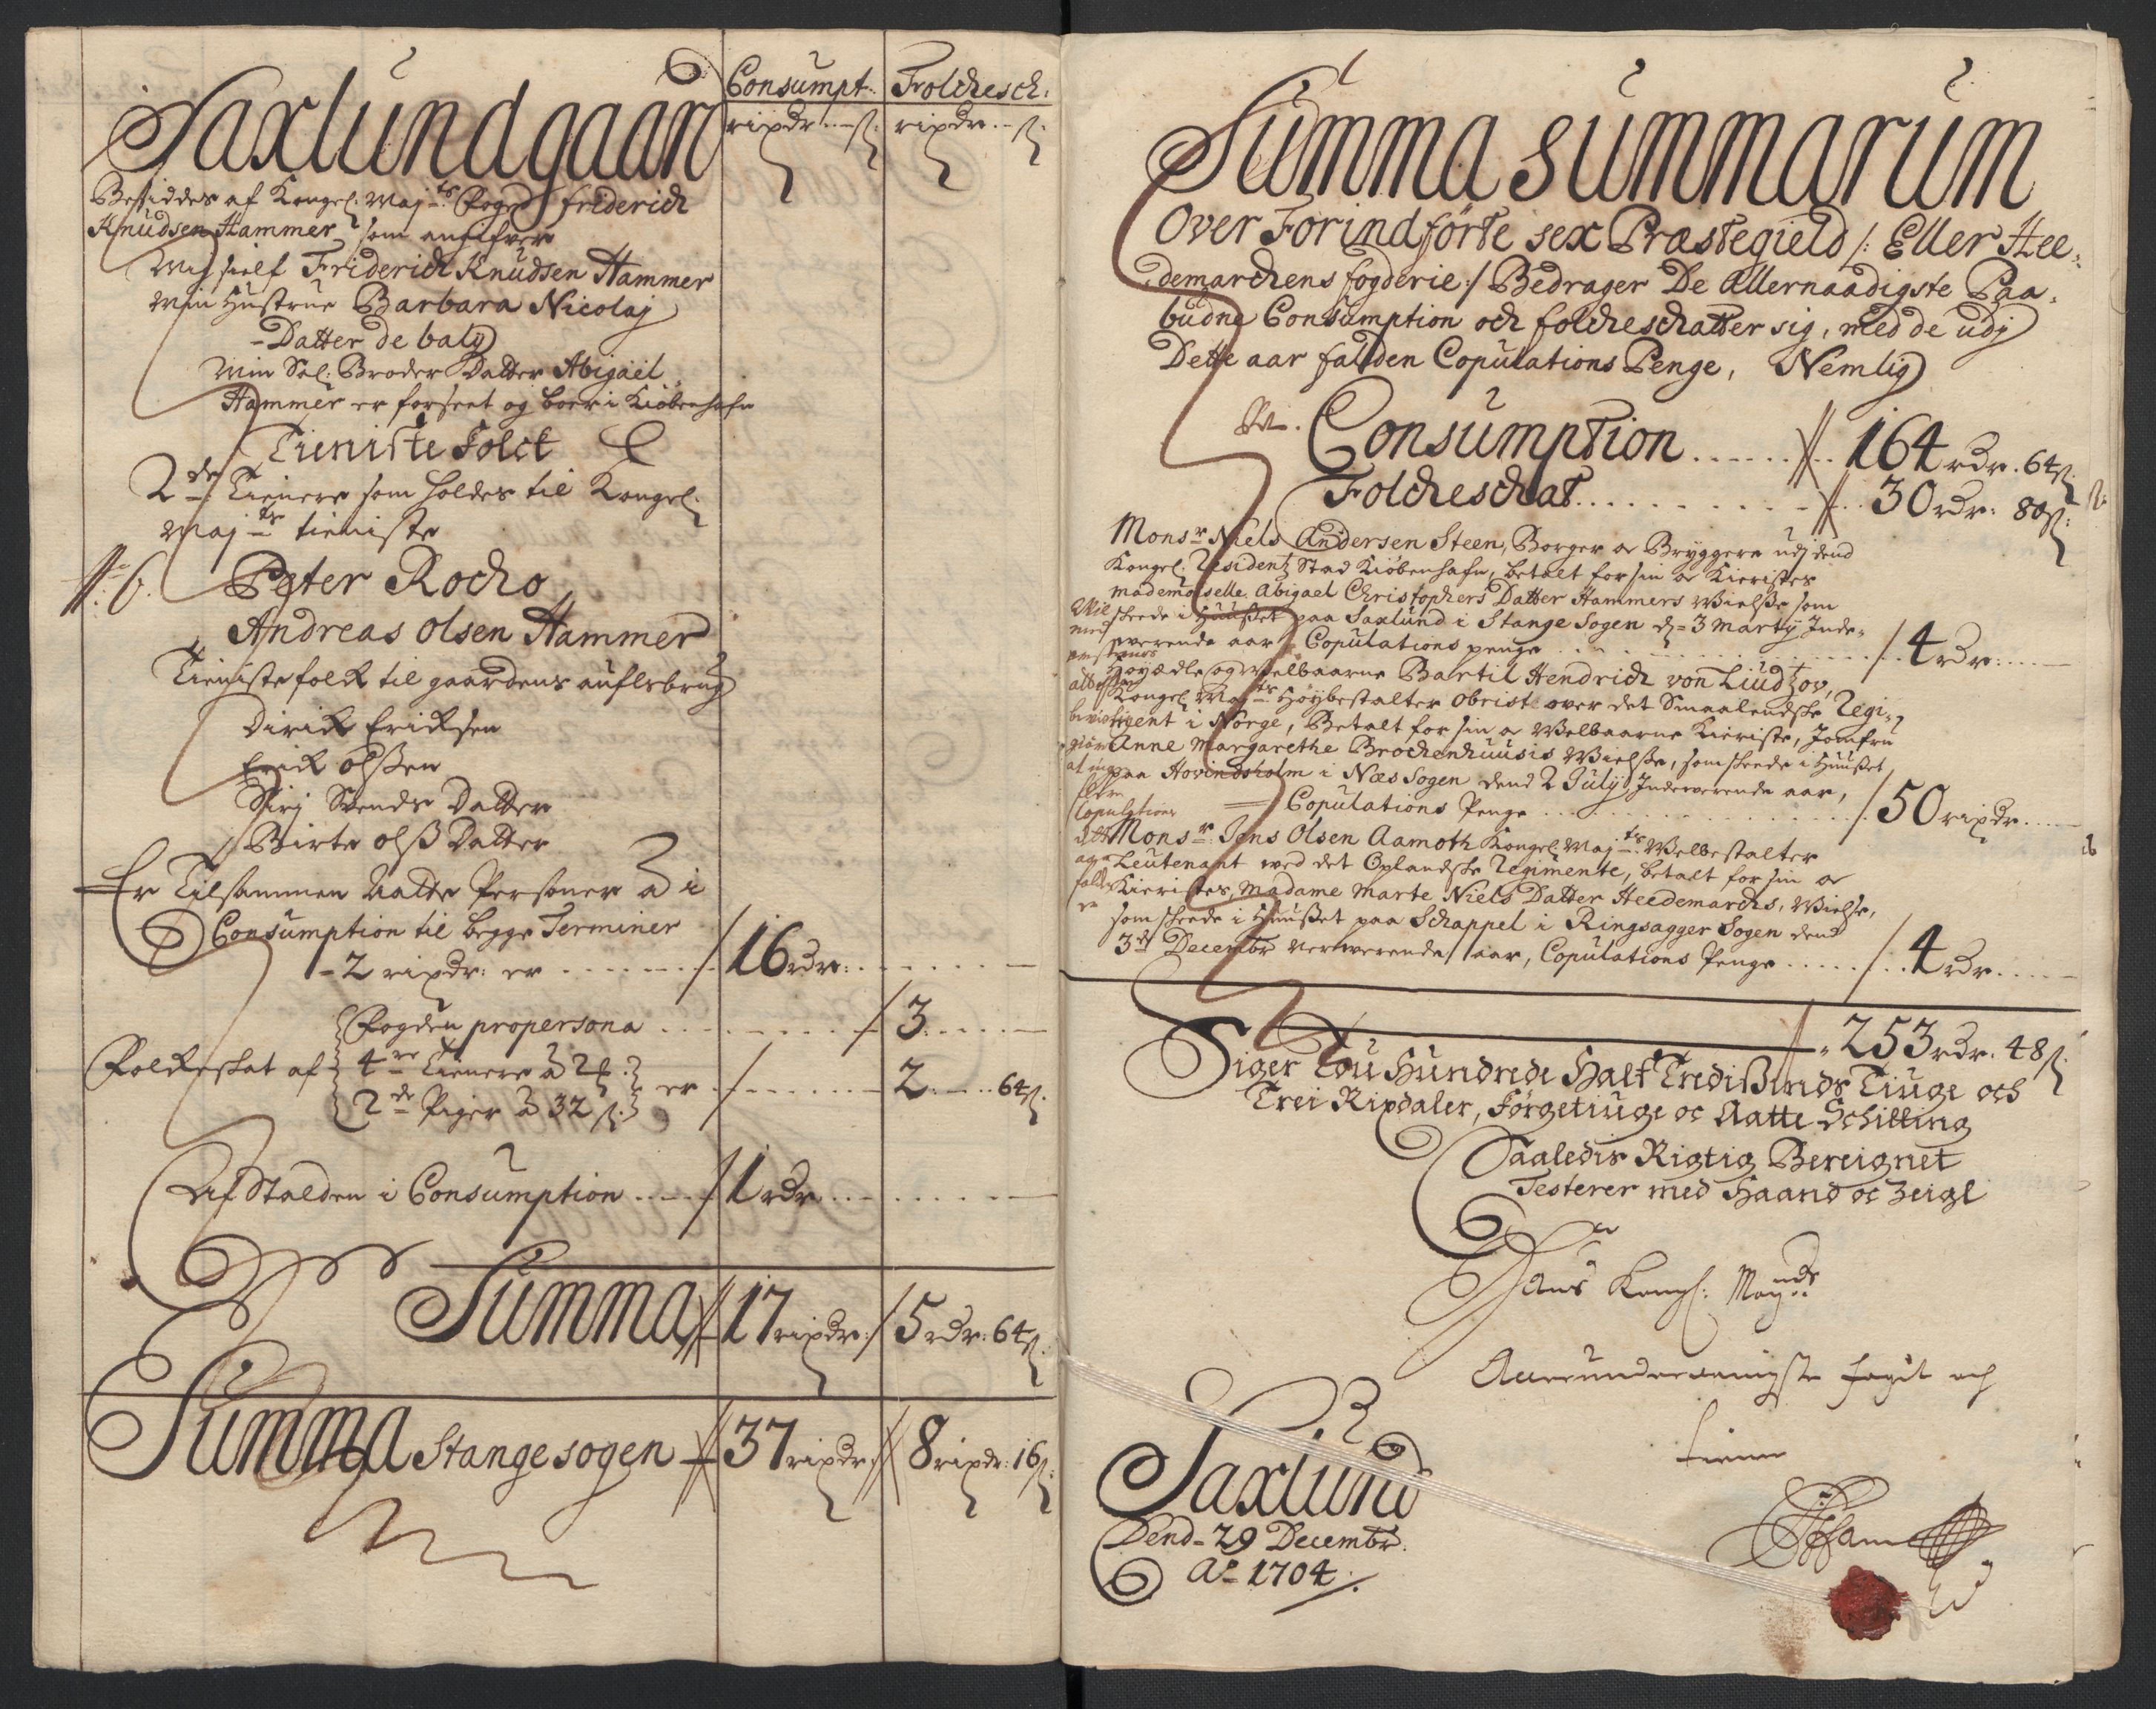 Consumpt. Folchesch:
ripdr. ß: ripdr. ß:
Saxlundgaan
Besiddes af Kongel: Maj:ts Foged friderich
Knudsen Hammer som angifver
Mig sielf Friderich Knudsen Hammer
Min Hustrue Barbara Nicolaj
Datter de baly
Min Sal: Broder Datter Abigael
Hammer er forseet og boer i Kiöbenhafn
Tieniste Folct
2de Tienere som holdes til Kongel:
Maj:ts tieniste
No 6. Peter Rocho
Andreas Olsen Hammer
Tieniste folck til gaardens auflsbrug
Dirick Ericksen
Erick Olßen
Siri Svends Datter
Birte Olß Datter
Er Tilsammen Aatte Personer â i
Consumption til begge Terminer
2 ripdr: er / 16 rdr:
Fogden propersona / 3
Folckeskat af 4re Tienere â 2 er / 2 64 ß:
2de Piger â 32 ß:
Af Stalden i Consumption / 1 rdr
Summa 17 ripdr: / 5 rdr: 64 ß:
Summa Stangesogen 37 ripdr: 8 ripdr: 16 ß:
Summa Summarum
Over Forindförte sex Præstegield /: Eller Hee-
demarchens fogderie :/ Bedrager De Allernaadigste Paa-
budne Consumption och folcheschatter sig, med de udj
Dette aar falden Copulations Penge, Nemlig
Consumption 164 rdr. 64 ß
Folcheschat 30 rdr: 80 ß:
Monsr Niels Andersen Steen, Borger oc Bryggere udj dend
Kongel: Residentz Stad Kiöbenhafn, betalt for sin oc Kieristes
Mademoiselle Abigael Christophers Datter Hammers Wielße som
skeede i Huußet paa Saxlund i Stange Sogen d= 3 Martij Inde-
verende aar Copulations penge / 4 rdr:
Høyædle og velbaarne Bartil Hendrich von Liudtzov,
Kongel: Maj:ts Høybestalter Obrist over det Smaalendske Regi-
ment i Norge, Betalt for sin oc Welbaarne Kieriste, Jomfru
Anne Margarethe Brochenhuusis Wielße, som skeede i Huußet
paa Hovindsholm i Næs Sogen dend 2 Julij Indeverende aar,
Copulations Penge / 50 ripdr
Copulations
Monsr Jens Olsen Aamoth Kongel: Maj:ts Welbestalter
Leutenant wed det Oplandske Regimente, betalt for sin oc
Kieristes, Madame Marte Niels Datter Heedemarchs, Wielse,
som skeede i Huußet paa Schappel i Ringsagger Sogen dend
3de Decembr verwerende aar, Copulations Penge / 4 rdr
253 rdr. 48 ß.
Siger Tou Hundrede Half Tredißinds Tiuge och
Trei Rixdaler, Førgetiuge oc Aatte Schilling
Saaledis Rigtig Bereignet
Testerer med Haand oc Zeigl
Hans Kongl: Mayds
Allerunderdanigste fogit och
tiener
Saxlund
Dend 29 Decembr.
Ao 1704